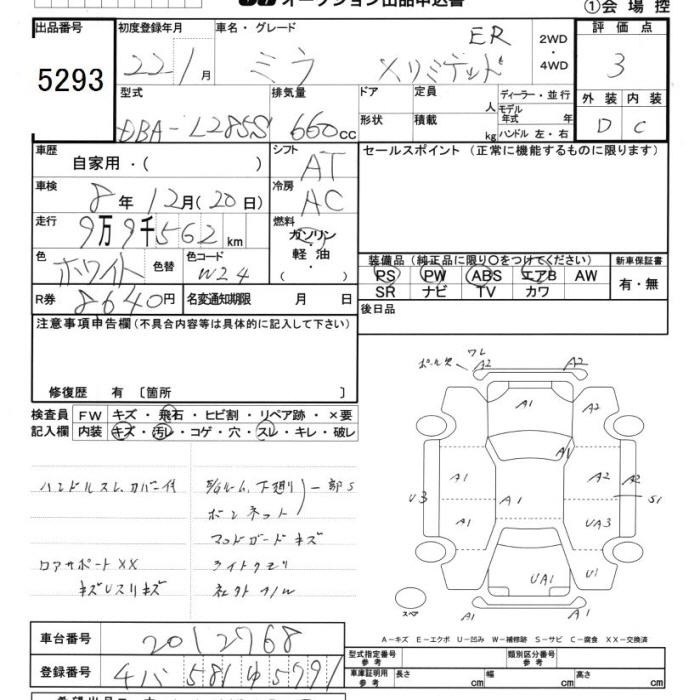 オークション出品申込書
①会場控
出品番号 初度登録年月 車名・グレード 2WD・4WD 評価点
5293 22 1月 ミラ ER Xリミテッド 3
型式 排気量 ドア 定員 人 ディーラー・並行 外装 内装
DBA-L285S 660cc 形状 積載 kg モデル年式 年 D C
ハンドル 左・右
車歴 シフト セールスポイント (正常に機能するものに限ります)
自家用・( ) AT
車検 冷房
8年 12月(20日) AC
走行 燃料
9万9千562km ガソリン・軽油・( )
色 色替 色コード 装備品 (純正品に限り○をつけてください) 新車保証書
ホワイト W24 PS PW ABS エアB AW 有・無
SR ナビ TV カワ
R券 8640円 名変通知期限 月 日 後日品
注意事項申告欄(不具合内容等は具体的に記入して下さい)
修復歴 有〔箇所 〕
検査員 FW キズ・飛石・ヒビ割・リペア跡・×要
記入欄 内装 キズ・汚レ・コゲ・穴・スレ・キレ・破レ
ハンドルスレ、カバー付
下廻り 一部S
ボンネット
マッドガードキズ
ロアサポートXX ライトクモリ
キズUスリキズ
ワレ
A2 A2
A1 A2
A1
A1 A2 A2
U3 A1 S1
A1 UA3
UA1 U1
スペア A1 A1
A-キズ E-エクボ U-凹み W-補修跡 S-サビ C-腐食 XX-交換済
車台番号 2012768
型式指定番号 参考 類別区分番号 参考
登録番号 581 ゆ5991
車庫証明用 参考 長さ cm 幅 cm 高さ cm